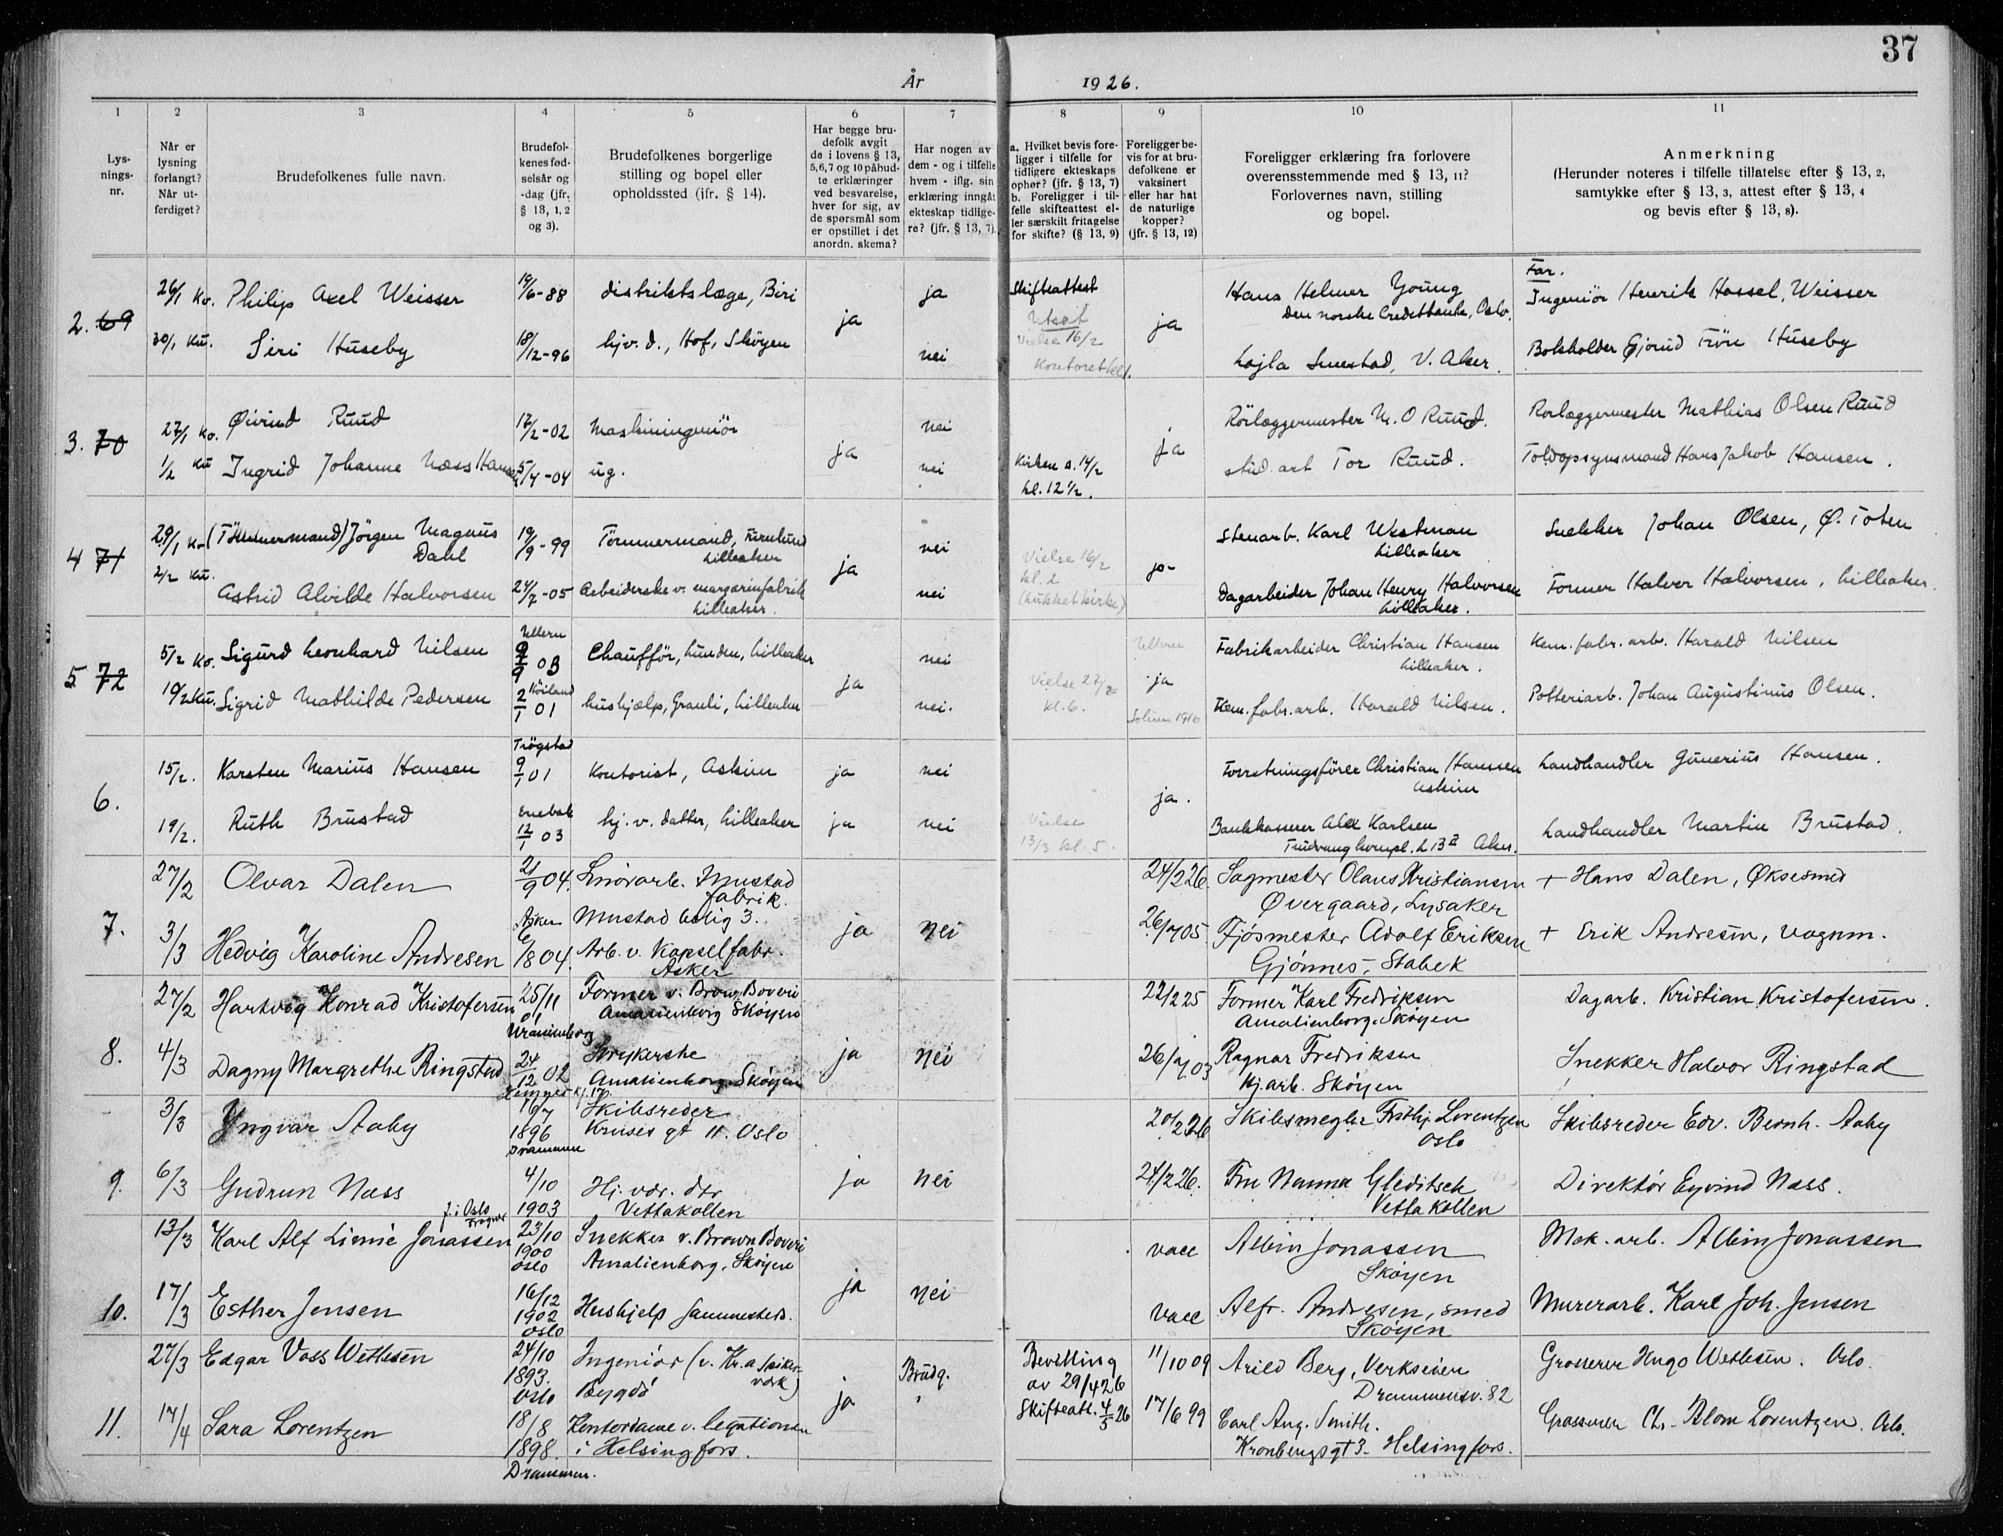 37
År 1926.
1 2 3 4 5 6 7 8 9 10 11
Lys-
nings-
nr.
Når er
lysning
forlangt?
Når ut-
ferdiget?
Brudefolkenes fulle navn.
Brudefol-
kenes fød-
selsår og
-dag (jfr.
§ 13, 1, 2
og 3).
Brudefolkenes borgerlige
stilling og bopel eller
opholdssted (jfr. § 14).
Har begge bru-
defolk avgit
de i lovens § 13,
5,6,7 og 10 påbud-
te erklæringer
ved besvarelse,
hver for sig, av
de spørsmål som
er opstillet i det
anordn. skema?
Har nogen av
dem - og i tilfelle
hvem - iflg. sin
erklæring inngåt
ekteskap tidlige-
re? (jfr. § 13, 7).
a. Hvilket bevis fore-
ligger i tilfelle for
tidligere ekteskaps
ophør? (jfr. § 13, 7)
b. Foreligger i til-
felle skifteattest el-
ler særskilt fritagelse
for skifte? (§ 13, 9)
Foreligger be-
vis for at bru-
defolkene er
vaksinert
eller har hat
de naturlige
kopper?
(jfr. § 13, 12)
Foreligger erklæring fra forlovere
overensstemmende med § 13, 11?
Forlovernes navn, stilling
og bopel.
Anmerkning
(Herunder noteres i tilfelle tillatelse efter § 13, 2,
samtykke efter § 13, 3, attest efter § 13, 4
og bevis efter § 13, 8).
2. 69 26/1 Ko. Philip Axel Weisser 19/6-88 distriktslæge, Biri ja ja Skifteattest ja Hans Helmer Young Far. Ingeniör Henrik Hassel Weisser
Den norske Creditbank, Oslo.
30/1 Ku. Siri Huseby 18/12-96 hjv. d., Hof, Sköyen nei Vielse 16/2 Kontoret Lajla Smestad, V. Aker. Bokholder Huseby
3. 70 27/1 Ko. Øivind Ruud 17/2-02 Maskiningeniör ja nei ja Rörlæggermester M. O Ruud. Rorlæggermester Mathias Olsen Ruud
1/2 Ku Ingrid Johanne Næss Hansen 5/4-04 ug. nei Kirken a. 14/2 kl. 12 1/2. stud. art Tor Ruud. Toldopsynsmand Hans Jakob Hansen.
4 71 29/1 Ko (Tömmermand) Jörgen Magnus Dahl 19/9-99 Tömmermand, Furulund Lilleaker ja nei Vielse 16/2 kl. 2 (Lukket kirke) ja Stenarb. Karl Westman Lilleaker Snekker Johan Olsen, Ø. Toten
2/2 Ku. Astrid Alvilde Halvorsen 24/7-05 Arbeiderske v. margarinfabrik Lilleaker. nei Dagarbeider Johan Henry Halvorsen Lilleaker. Former Halvor Halvorsen, Lilleaker.
5 72 5/2 Ko. Sigurd Leonhard Nilsen Ullern 9/9 03 Chaufför, Lunden, Lilleaker ja nei Vielse 27/2 kl. 6. Ullern ja Fabrikarbeider Christian Hansen Lilleaker. Kem. fabr. arb. Harald Nilsen
10/2 Ku. Sigrid Mathilde Pedersen 2/1 01 hushjælp, Granli, Lilleaker nei. Solum 1916 Kem. fabr. arb. Harald Nilsen. Potteriarb. Johan Augustinus Olsen.
6. 15/2. Karsten Marius Hansen Trögstad 9/1 01 Kontorist, Askim ja nei ja. Forretningsförer Christian Hanssen Askim Landhandler Gunerius Hansen.
19/2. Ruth Brustad Enebak 12/1 03 hj. v. datter, Lilleaker ja nei Vielse 13/3 kl. 5. Bankkasserer Alex Karlsen Aker. Landhandler Martin Brustad.
7. 27/2 Olvar Dalen 21/9 04. Smörarb. Mustad fabrik. ja nei 24/2 26. Sagmester Olaus Kristiansen Øvergaard, Lysaker + Hans Dalen, Øksesmed
Mustad bolig 3.
3/3 Hedvig Karoline Andresen Asker 6/8 04. Arb. v. Kapselfabr. Asker 26/7 05 Fjósmester Adolf Eriksen Gjönnes, Stabek + Erik Andresen, vognm.
8. 27/2 Hartvig Konrad Kristofersen 25/11 01 Former v. Brown Boveri Amalienborg Sköyen ja nei 22/2 25 Former Karl Fredriksen Amalienborg. Sköyen Dagarb. Kristian Kristofersen.
4/3 Dagny Margrethe Ringstad Uranienborg 24/12 02 Strykerske Amalienborg Sköyen 26/4 03 Ragnar Fredriksen Hj.arb. Sköyen Snekker Halvor Ringstad
9. 3/3 Yngvar Aaby 16/7 1896 Skibsreder Kruses gt 11. Oslo ja nei 20/2 26 Skibsmegler Fridtj. Lorentzen Oslo Skibsreder Edv. Bernh. Aaby
6/3 Gudrun Næss Drammen 4/10 1903 Hj. vær. dtr Vettakollen 24/2 26. Fru Nanna Gleditsch Vettakollen Direktör Eyvind Næss.
10. 13/3 Karl Alf Jonassen f. i Oslo Frogner 23/10 1900 Oslo Snekker v. Brown Boveri Amalienborg, Sköyen ja nei vacc Albin Jonassen Sköyen Mek. arb. Albin Jonassen
17/3 Esther Jensen 16/12 1902 Oslo Hushjelp sammesteds. vacc Alfr. Andresen, smed Sköyen Murerarb. Karl Joh. Jensen
11. 27/3 Edgar Voss Wethesen 24/10 1893. Oslo Ingeniör (v. Kr.a Spikerverk) Bygdö ja Brudg. Bevilling av 29/4 26 11/10 09 Arild Berg, Verkseier Drammensv. 82 Grosserer Hugo Wethesen. Oslo.
17/4 Sara Lorentzen 18/8 1898. Drammen. Kontordame v. legationen i Helsingfors. Skifteatt. 4/5 26 17/6 99 Carl Aug. Smith. Kronbergsgt 3. Helsingfors. Grosserer Chr. Blom Lorentzen. Oslo.